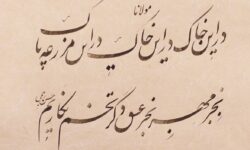 مولانا
در این خاک در این خاک در این مزرعه پاک
بجز مهر بجز عشق دگر تخم نکاریم